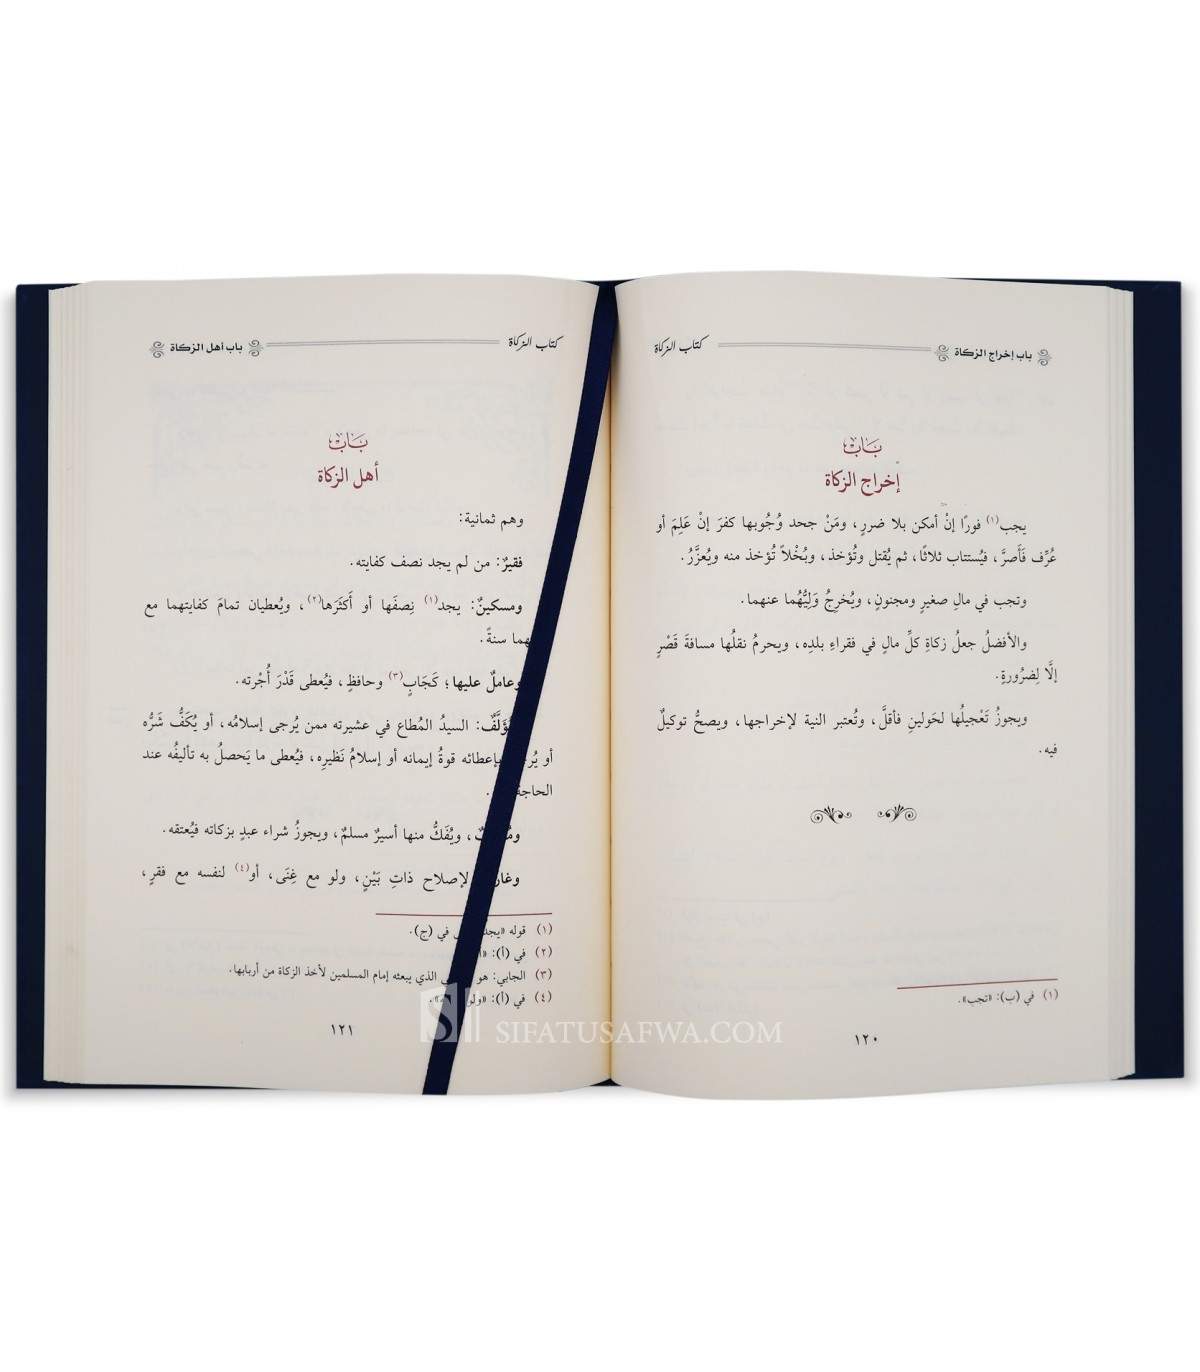 كتاب الزكاة
باب إخراج الزكاة
بَابُ
إخراج الزكاة
يجب(١) فورًا إنْ أمكن بلا ضررٍ، ومَنْ جحد وُجُوبها كفرَ إنْ عَلِمَ أو
عُرِّف فَأَصرَّ، فيُستتاب ثلاثًا، ثم يُقتل وتُؤخذ، وبُخْلاً تُؤخذ منه ويُعزَّرُ.
وتجب في مالِ صغيرٍ ومجنونٍ، ويُخرِجُ وَلِيُّهُما عنهما.
والأفضلُ جعلُ زكاةِ كلِّ مالٍ في فقراءِ بلدِه، ويحرمُ نقلُها مسافةَ قَصْرٍ
إلَّا لِضرُورةٍ.
ويجوزُ تَعْجيلُها لحَولينِ فأقلَّ، وتُعتبر النية لإخراجها، ويصحُّ توكيلٌ
فيه.
(١) في (ب): «تجب».
١٢٠
كتاب الزكاة
باب أهل الزكاة
بَابُ
أهل الزكاة
وهم ثمانية:
فقيرٌ: من لم يجد نصف كفايته.
ومسكينٌ: يجد(١) نِصفَها أو أَكثَرَها(٢)، ويُعطيان تمامَ كفايتهما مع
سنةً.
وعاملٌ عليها؛ كَجَابٍ(٣) وحافظٍ، فيُعطى قَدْرَ أُجْرته.
السيدُ المُطاع في عشيرته ممن يُرجى إسلامُه، أو يُكَفُّ شَرُّه
أو بإعطائه قوةُ إيمانه أو إسلامُ نَظيرِه، فيُعطى ما يَحصلُ به تأليفُه عند
ويُفَكُّ منها أسيرٌ مسلمٌ، ويجوزُ شراء عبدٍ بزكاته فيُعتقه.
لإصلاح ذاتِ بَيْنٍ، ولو مع غِنَى، أو(٤) لنفسه مع فقرٍ،
(١) قوله في (ج).
(٢) في (أ):
(٣) الجابي: هو الذي يبعثه إمام المسلمين لأخذ الزكاة من أربابها.
(٤) في (أ): «ولو
١٢١
SIFATUSAFWA.COM